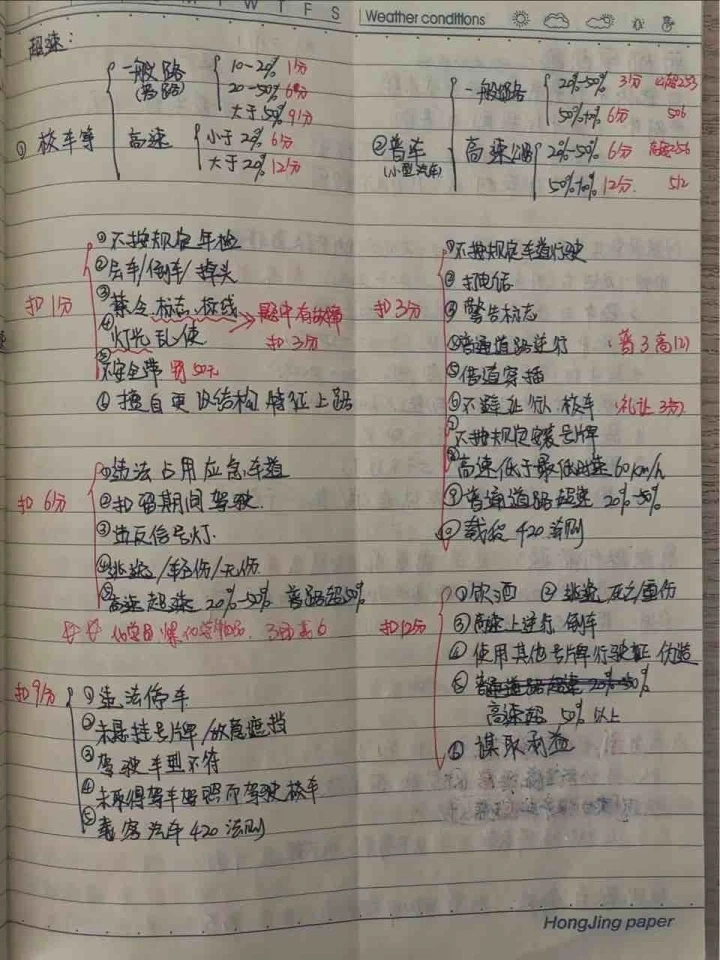 M T W T F S
Weather conditions
超速:
① 校车等
一般路
(普路)
10-20% 1分
20-50% 6分
大于50% 9分
高速
小于20% 6分
大于20% 12分
② 普车
(小型汽车)
一般公路
20%-50% 3分
50%以上 6分
506
高速公路
20%-50% 6分
50%以上 12分.
512
扣1分
①不按规定年检
②会车/倒车/掉头
③禁令.标志.标线
④灯光乱使
→ 路中有故障
扣3分
⑤不安全带 罚50元
⑥擅自更改结构 特征上路
扣3分
①不按规定车道行驶
②打电话
③警告标志
④普通道路逆行 (普3高12)
⑤借道穿插
⑥不避让行人.校车 (礼让 3分)
⑦不按规定安装号牌
⑧高速低于最低时速60km/h
⑨普通道路超速20%-50%
⑩载货420法则
扣6分
①违法占用应急车道
②扣留期间驾驶.
③违反信号灯.
④逃逸/轻伤/无伤
⑤高速超速 20%-50% 普路超50%
扣9分
①违法停车
②未悬挂号牌/故意遮挡
③驾驶车型不符
④未取得驾车驾照而驾驶校车
⑤载客汽车420法则
扣12分
①饮酒 ②逃逸 死亡/重伤
③高速上逆行 倒车
④使用其他号牌行驶证 伪造
⑤普通道路超速20%-50%
高速超 50%以上
⑥谋取利益
HongJing paper